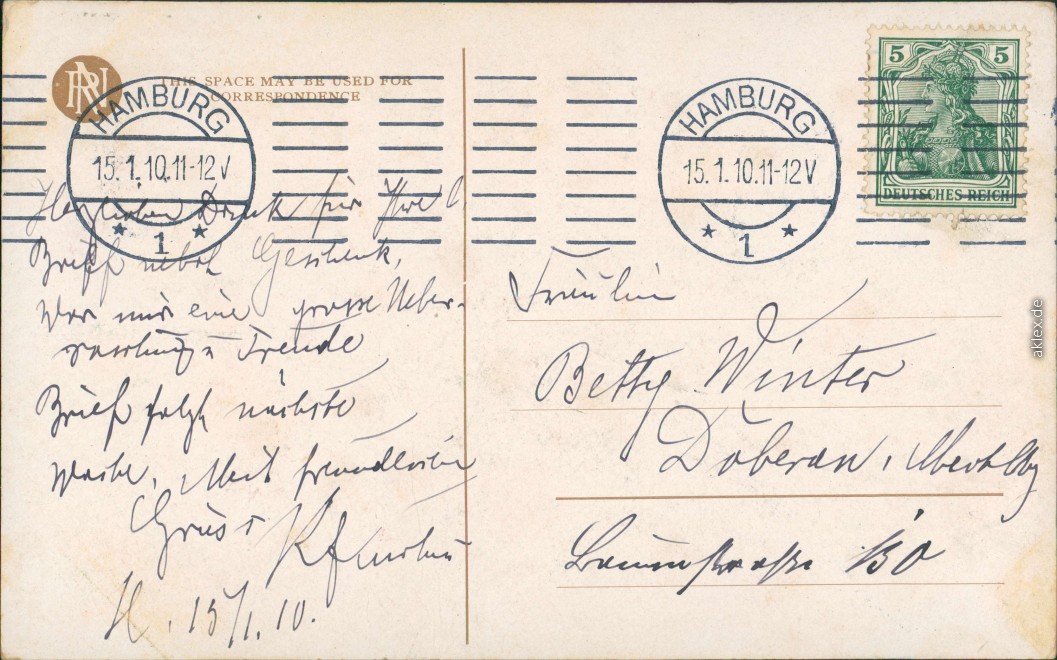 RN
THIS SPACE MAY BE USED FOR
CORRESPONDENCE
HAMBURG
15.1.10.11-12V
* 1 *
HAMBURG
15.1.10.11-12V
* 1 *
5 5
DEUTSCHES REICH
Herzlichen Dank für Ihre l.
Brief nebst Geschenk,
War mir eine grosse Ueber-
raschung u Freude
Brief folgt nächste
Woche. Mit freundlichen
Gruss
H. 15/1.10.
Fräulein
Betty Winter
Doberan, Mecklbg
aklex.de